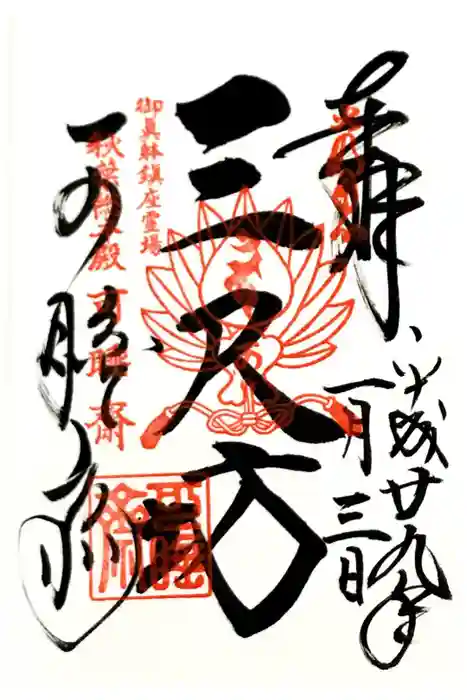 奉拝
平成廿九年
一月三日
三尺坊
御眞躰鎮座霊場
秋葉總本殿 可睡齋
可睡斎